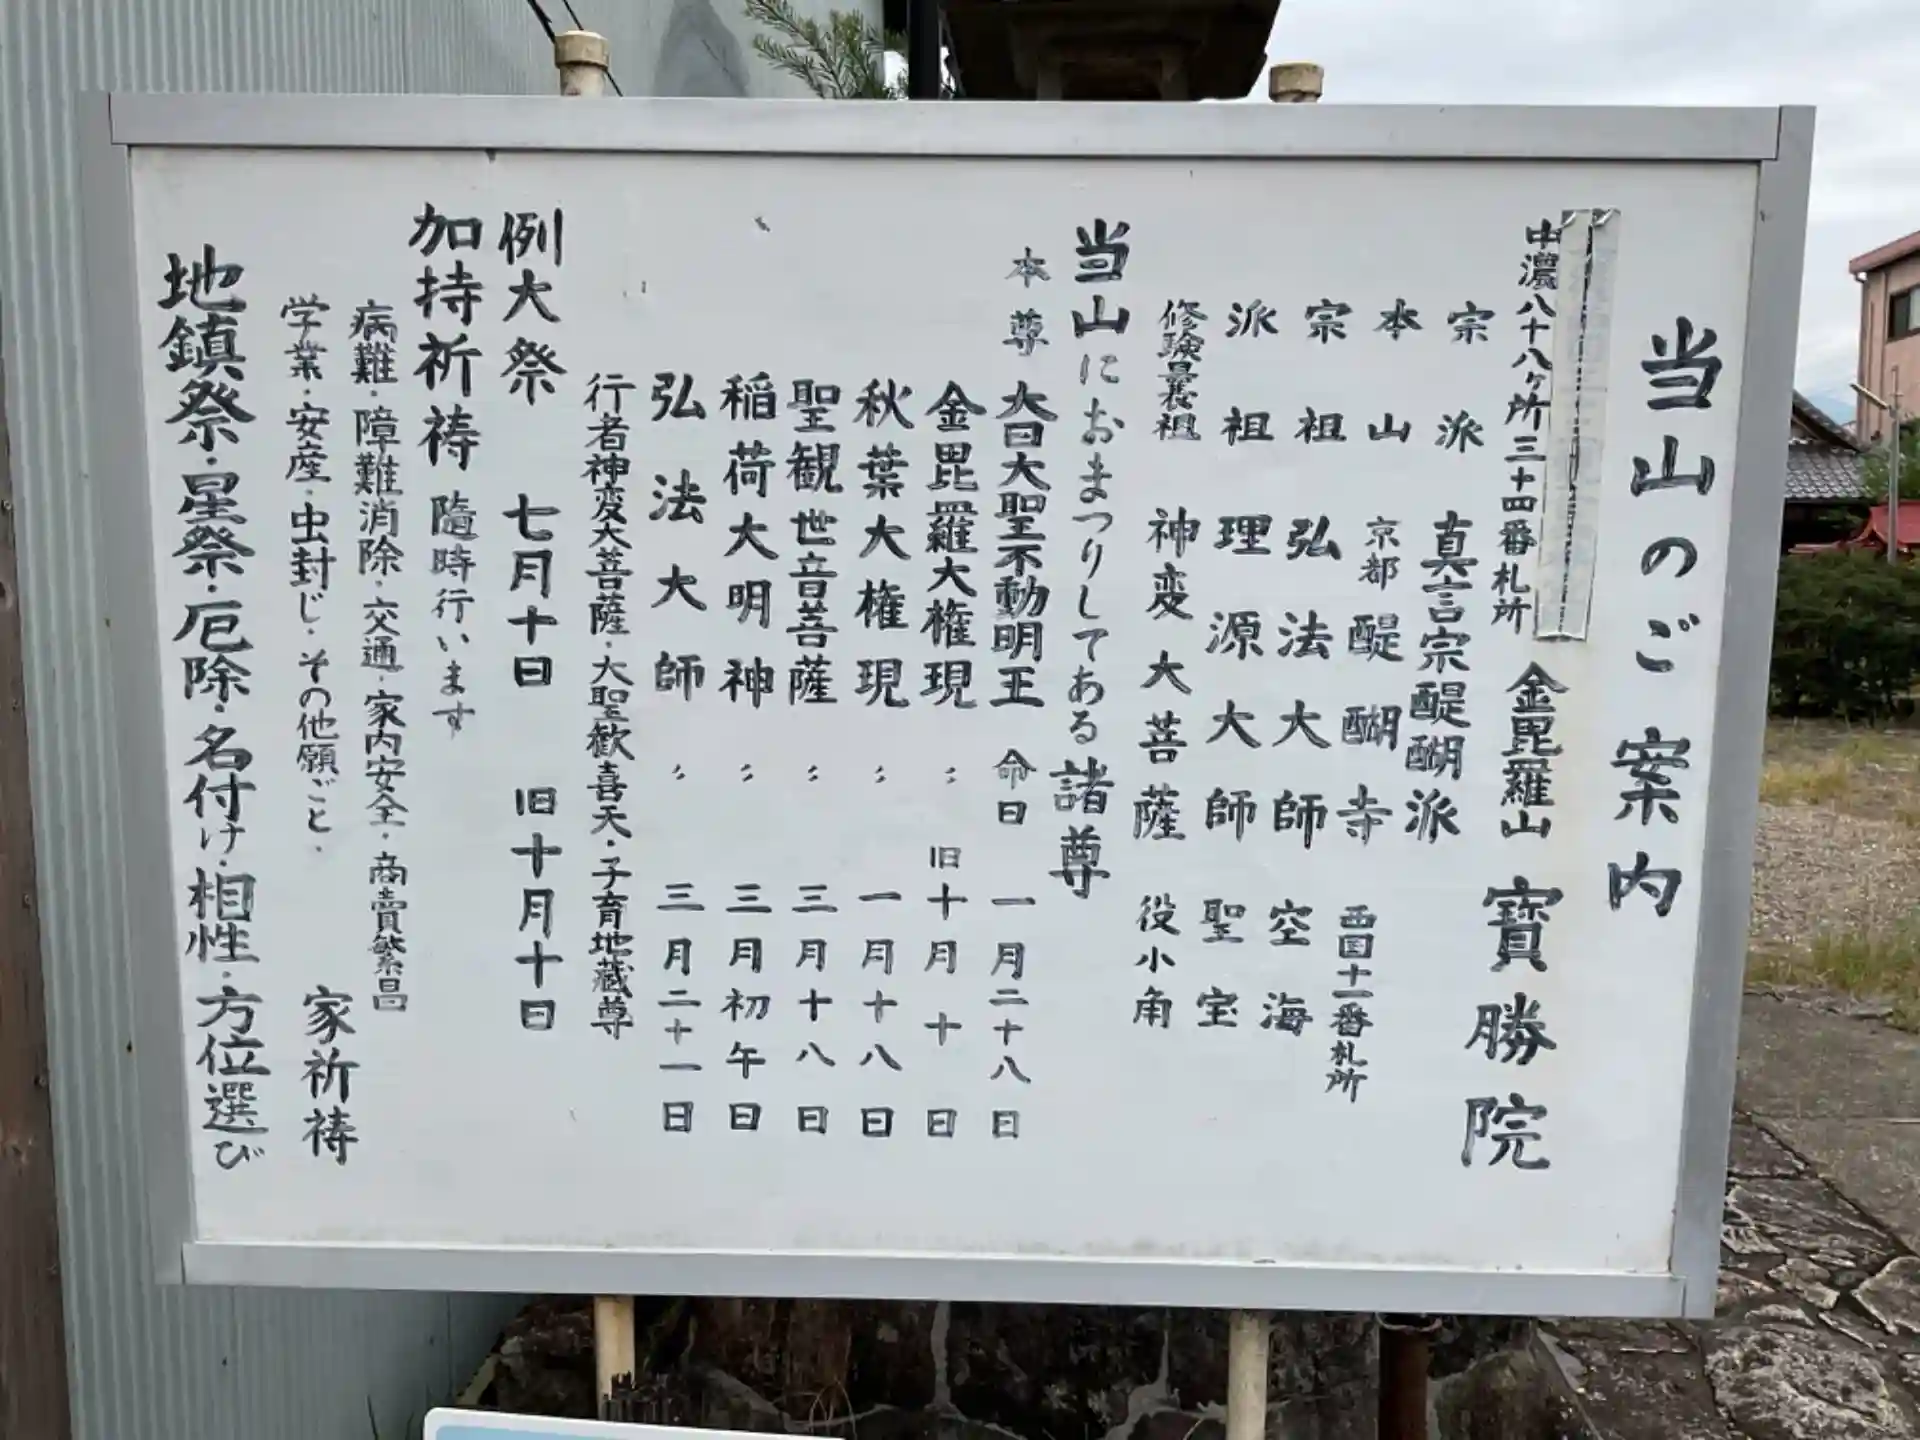 当山のご案内
中濃八十八ヶ所三十四番札所 金毘羅山 寶勝院
宗派 真言宗醍醐派
本山 京都 醍醐寺 西国十一番札所
宗祖 弘法大師 空海
派祖 理源大師 聖宝
修験曩祖 神変大菩薩 役小角
当山におまつりしてある諸尊
本尊 大日大聖不動明王 命日 一月二十八日
金毘羅大権現 〃 旧十月十日
秋葉大権現 〃 一月十八日
聖観世音菩薩 〃 三月十八日
稲荷大明神 〃 三月初午日
弘法大師 〃 三月二十一日
行者神変大菩薩・大聖歓喜天・子育地蔵尊
例大祭 七月十日 旧十月十日
加持祈祷 随時行います
病難・障難消除・交通・家内安全・商賣繁昌
学業・安産・虫封じ・その他願ごと・ 家祈祷
地鎮祭・星祭・厄除・名付け・相性・方位選び